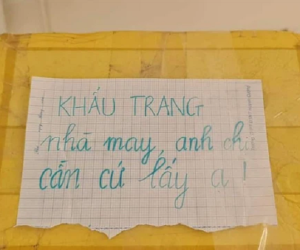 KHẨU TRANG
nhà may, anh chị
cần cứ lấy ạ!